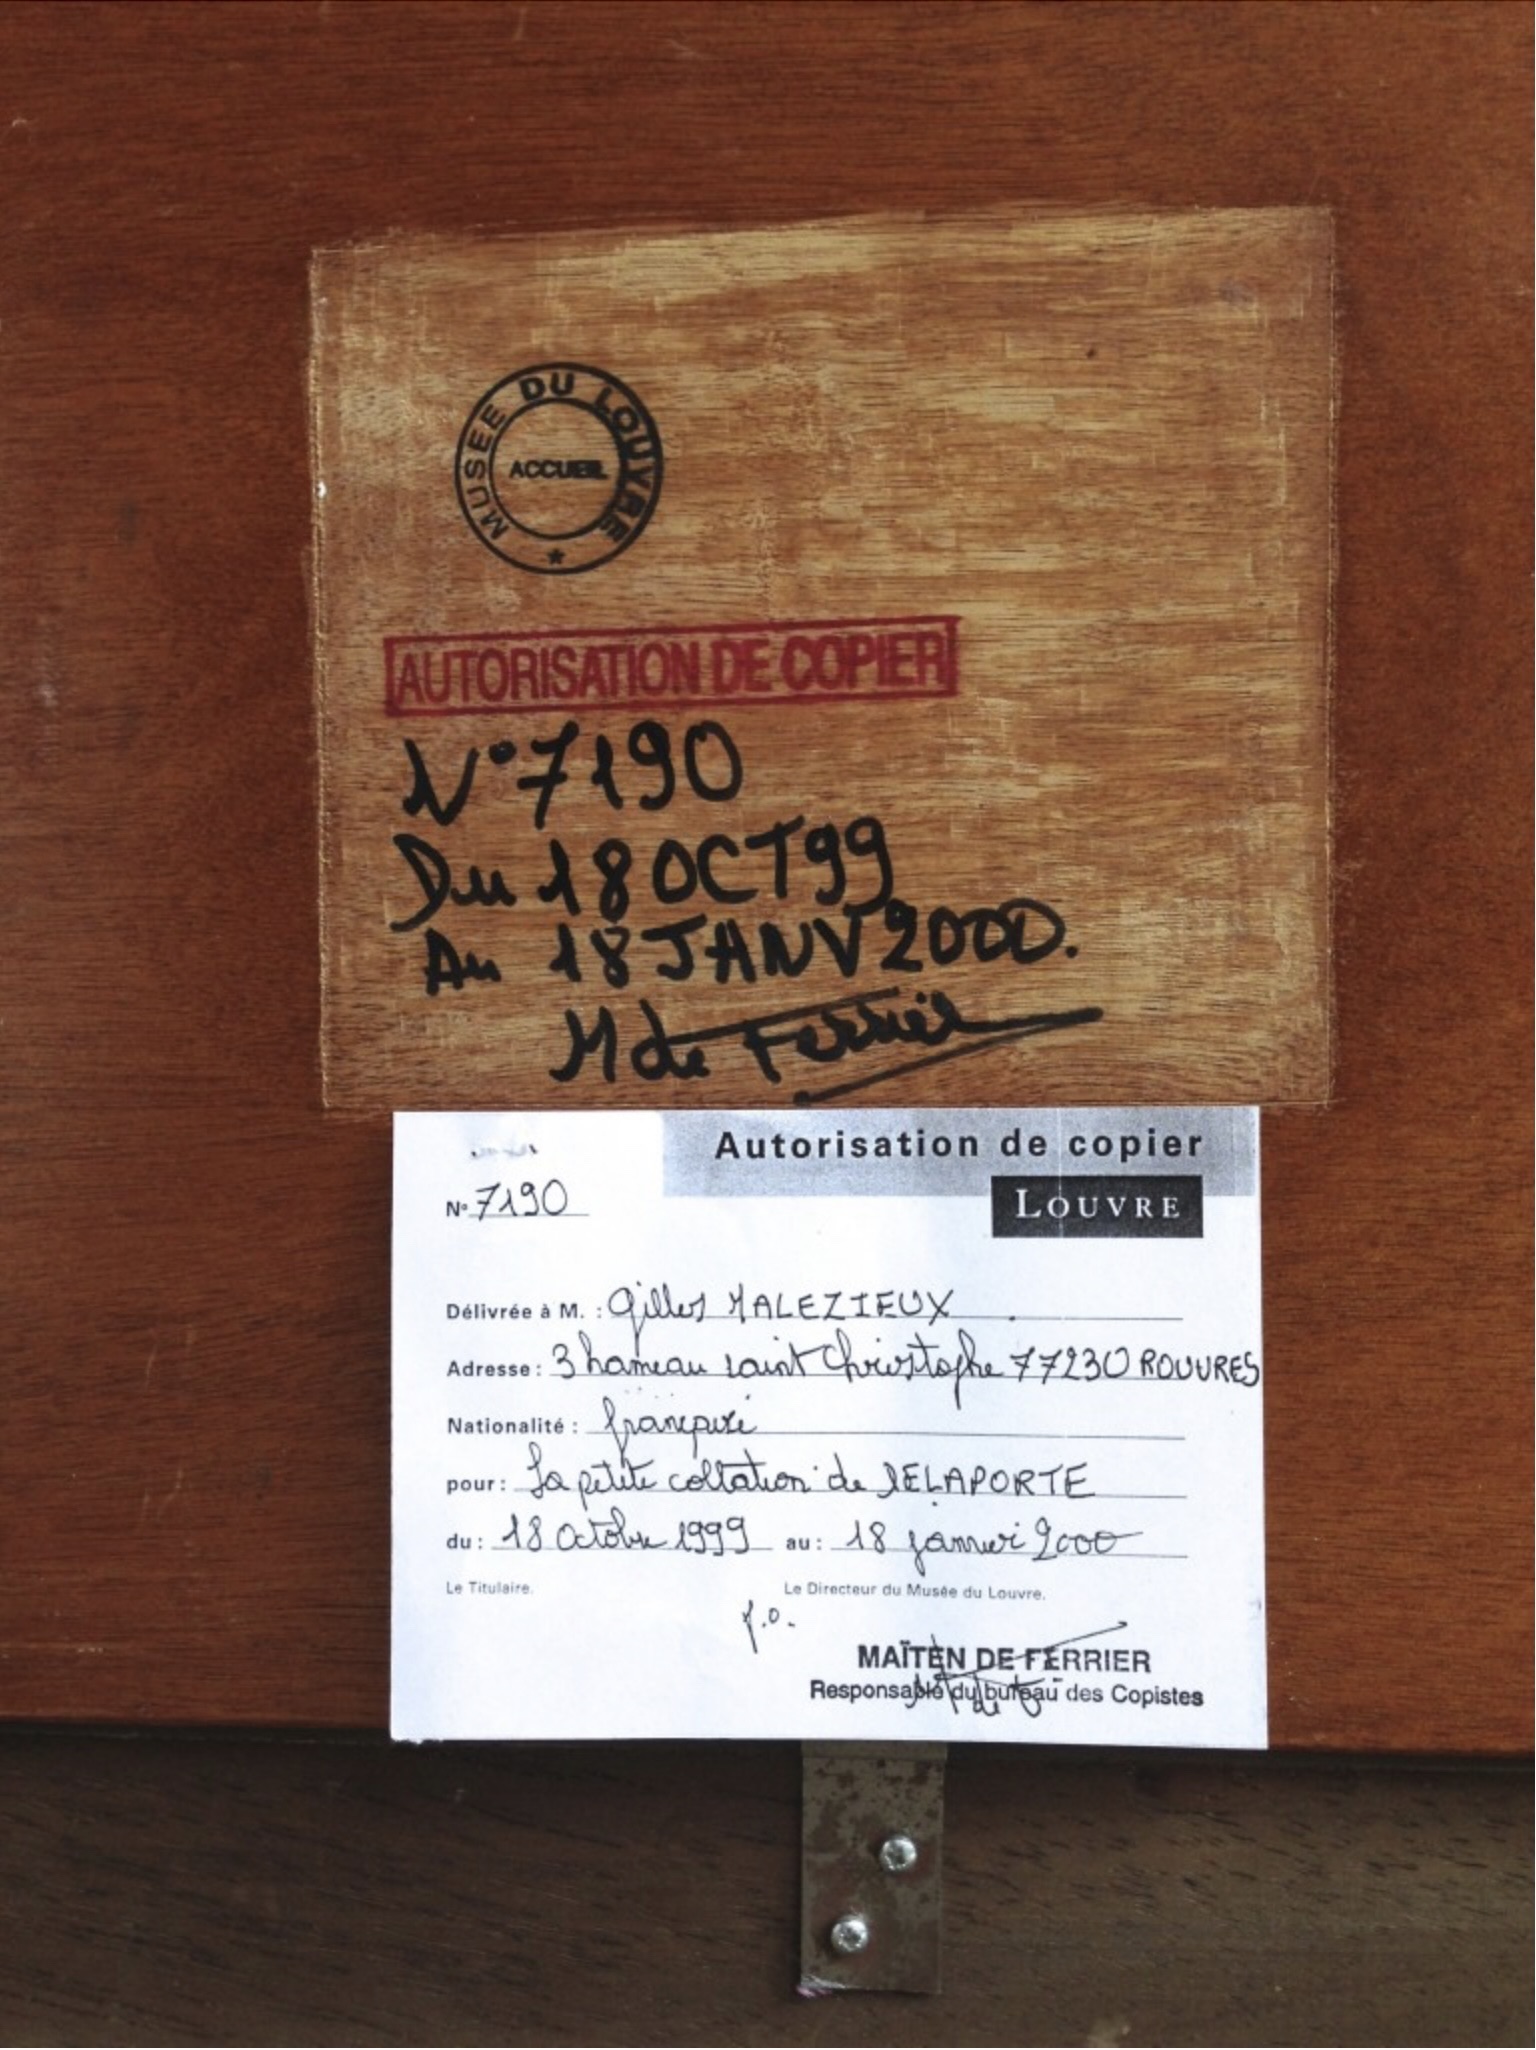 MUSEE DU LOUVRE
ACCUEIL
AUTORISATION DE COPIER
N°7190
Du 18 OCT 99
Au 18 JANV 2000.
M de Ferrier
Autorisation de copier
LOUVRE
N° 7190
Délivrée à M. : Gilles MALEZIEUX
Adresse : 3 hameau saint Christophe 77230 ROUVRES
Nationalité : française
pour : La petite collation de DELAPORTE
du : 18 octobre 1999 au : 18 janvier 2000
Le Titulaire. Le Directeur du Musée du Louvre.
p.o.
MAÏTEN DE FERRIER
Responsable du bureau des Copistes